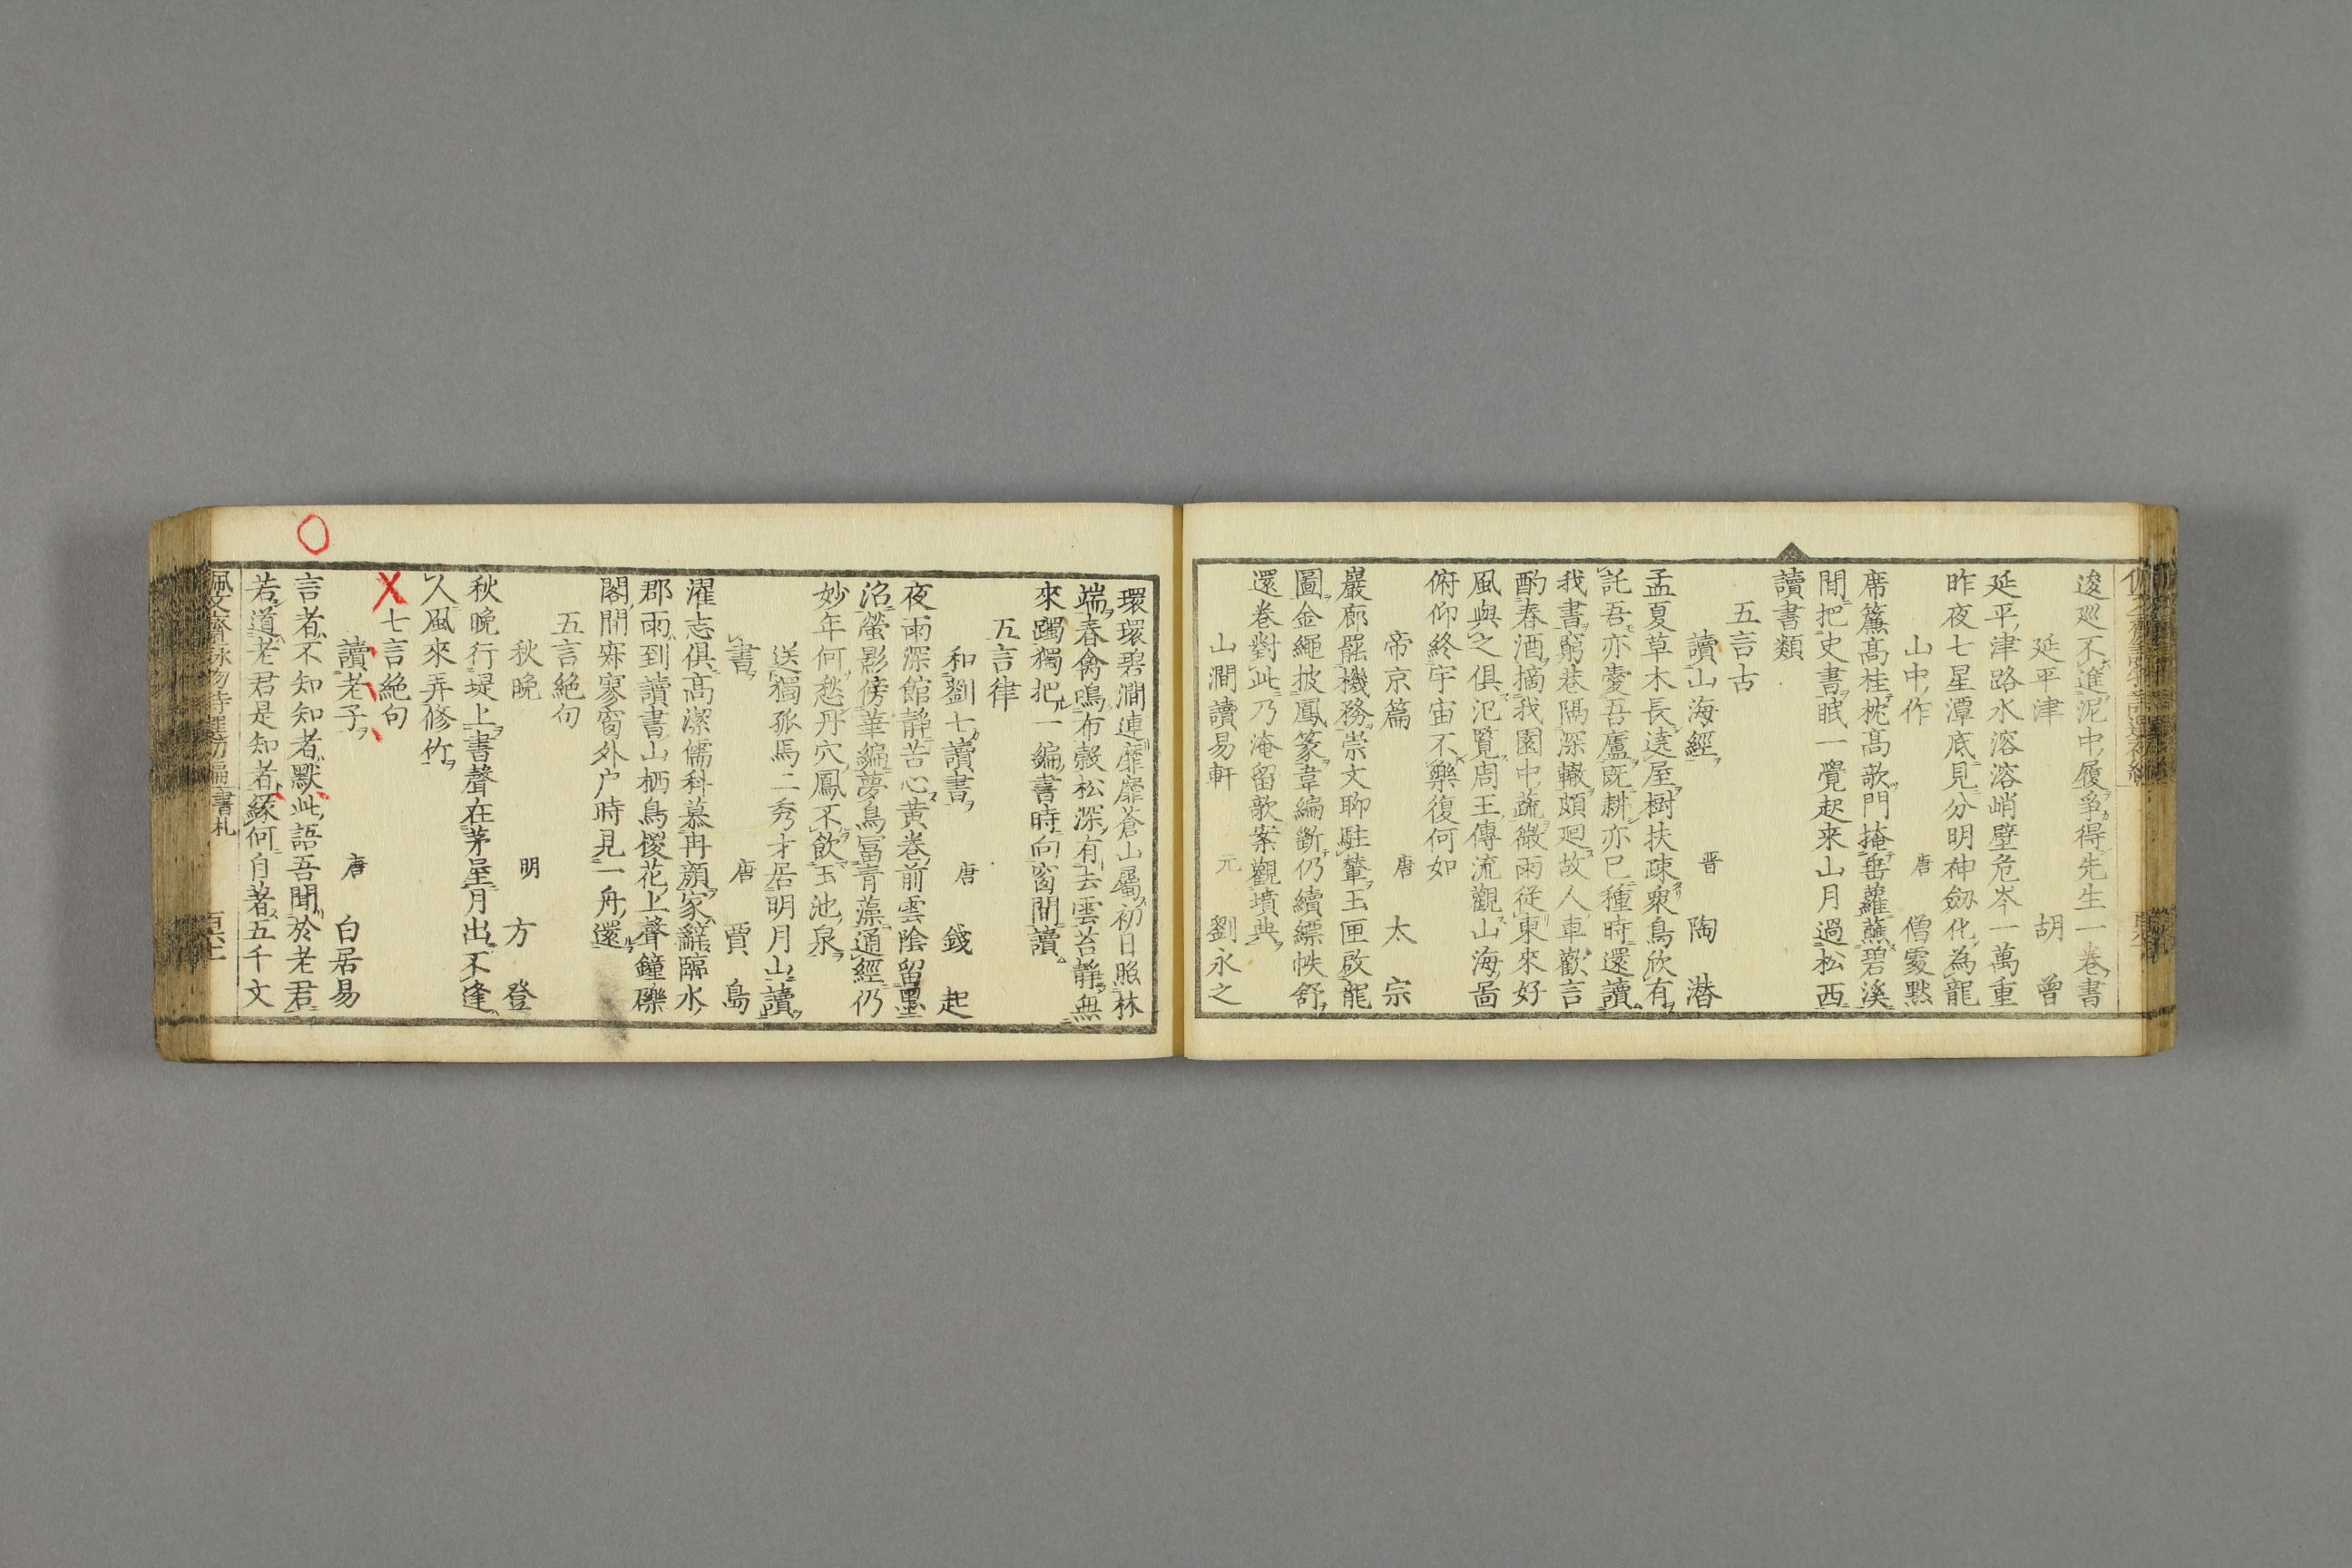 逡巡不進泥中履爭得先生一卷書
延平津 胡曾
延平津路水溶溶峭壁危岑一萬重
昨夜七星潭底見分明神劔化為龍
山中作 唐 僧處黙
席簾髙桂枕髙歌門掩垂蘿蘸碧溪
閒把史書眠一覺起來山月過松西
讀書類
五言古
讀山海經 晋 陶潜
孟夏草木長遶屋樹扶疎衆鳥欣有
託吾亦愛吾廬既耕亦已種時還讀
我書窮巷隔深轍頗廻故人車歡言
酌春酒摘我園中蔬微雨從東來好
風與之俱汜覽周王傳流觀山海啚
俯仰終宇宙不樂復何如
帝京篇 唐 太宗
巖廊罷機務崇文聊駐輦玉匣啟龍
圖金繩披鳳篆韋編斷仍續縹帙舒
還巻對此乃淹留欹案觀墳典
山澗讀易軒 元 劉永之
環環碧澗連靡靡蒼山屬初日照林
端春禽鳴布縠松深有去雲苔靜無
來躅獨把一編書時向窗間讀
五言律
和劉七讀書 唐 錢起
夜雨深館静苦心黄巻前雲陰留墨
沼螢影傍華編夢鳥冨青藻通經仍
妙年何愁丹穴鳳不飲玉池泉
送獨孤馬二秀才居明月山讀
書 唐 賈島
濯志俱高潔儒科慕冉顔家辭臨水
郡雨到讀書山栖鳥椶花上聲鐘礫
閣間寂寥窗外户時見一舟還
五言絶句
秋晩 明 方登
秋晩行堤上書聲在茅屋月出不逢
人風來弄修竹
七言絶句
讀老子 唐 白居易
言者不知知者默此語吾聞於老君
若道老君是知者縁何自著五千文
佩文齋詠物詩選初編 書札